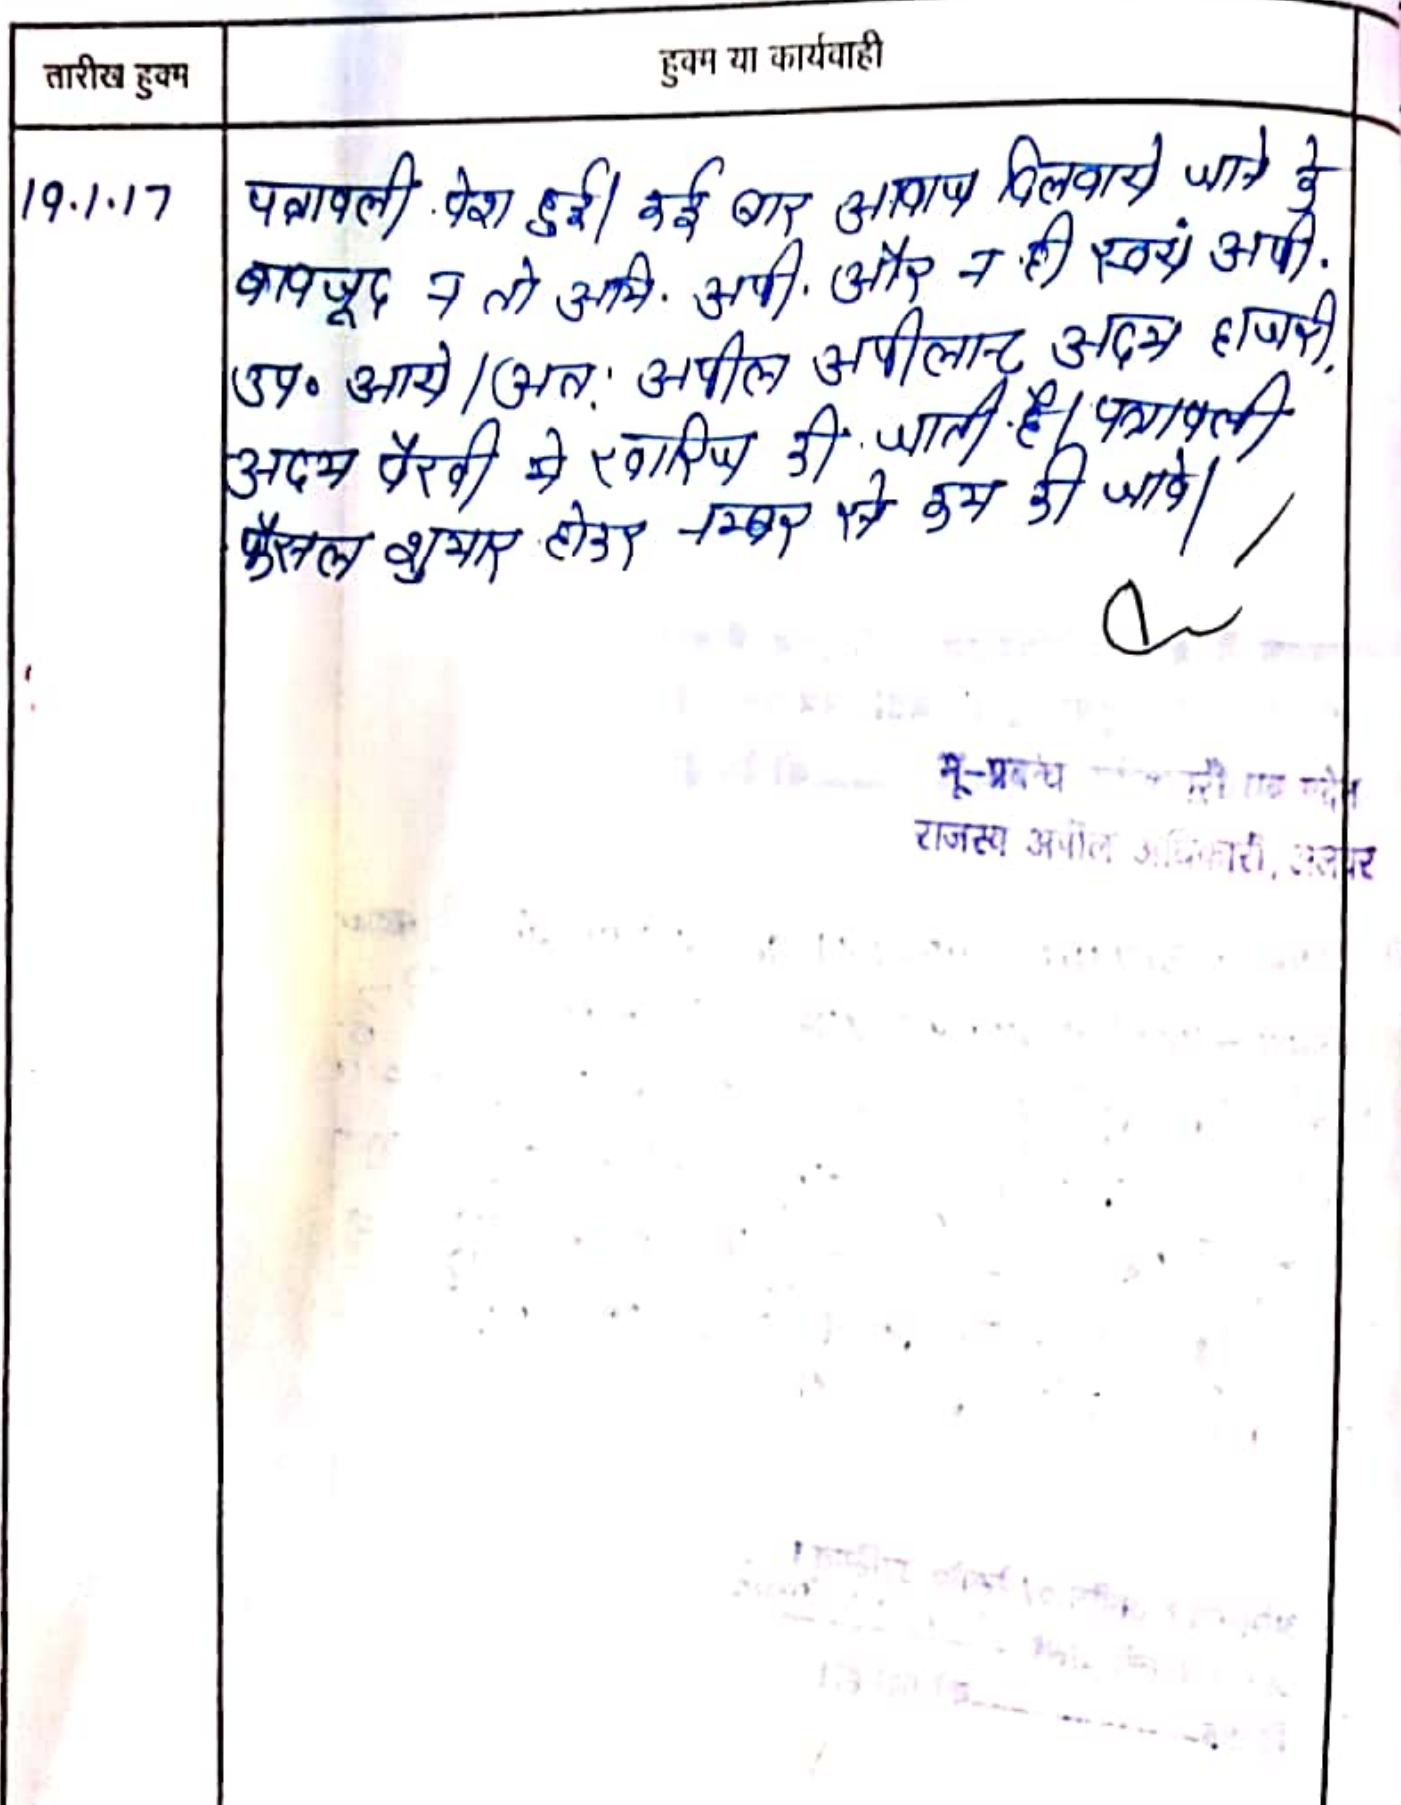 तारीख हुक्म
हुक्म या कार्यवाही
19.1.17
पत्रावली पेश हुई। कई बार आवाज दिलवाये जाने के
बावजूद न तो अभि. अपी. और न ही स्वयं अपी.
उप० आये। अत: अपील अपीलान्ट अदम हाजरी,
अदम पैरवी मे खारिज की जाती है। पत्रावली
फैसल शुमार होकर नम्बर से कम की जावे।
भू-प्रबन्ध
राजस्व अपील अधिकारी, अलवर